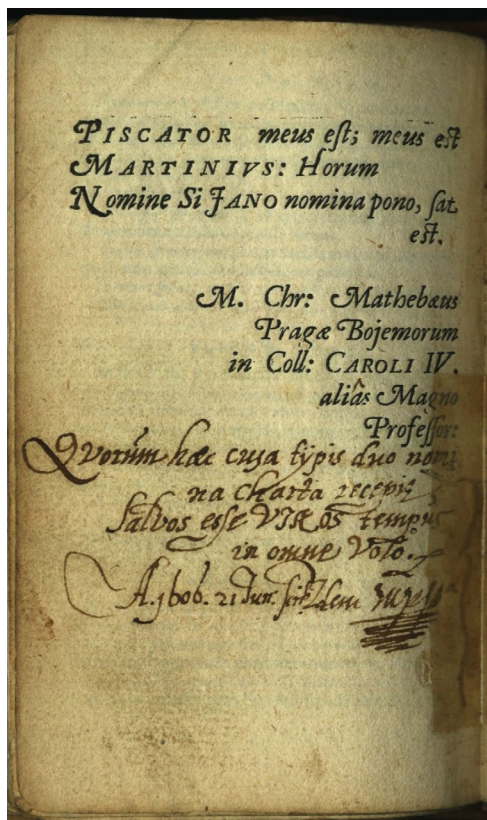 PISCATOR meus est; meus est
MARTINIVS: Horum
Nomine Si JANO nomina pono, sat
est.
M. Chr: Mathebæus
Pragæ Bojemorum
in Coll: CAROLI IV.
aliâs Magno
Professor:
Quorum hæc cusa typis duo nomi
na charta recepit
Salvos esse VIROS tempus
in omne Volo.
A. 1606. 21 Jun. scrib